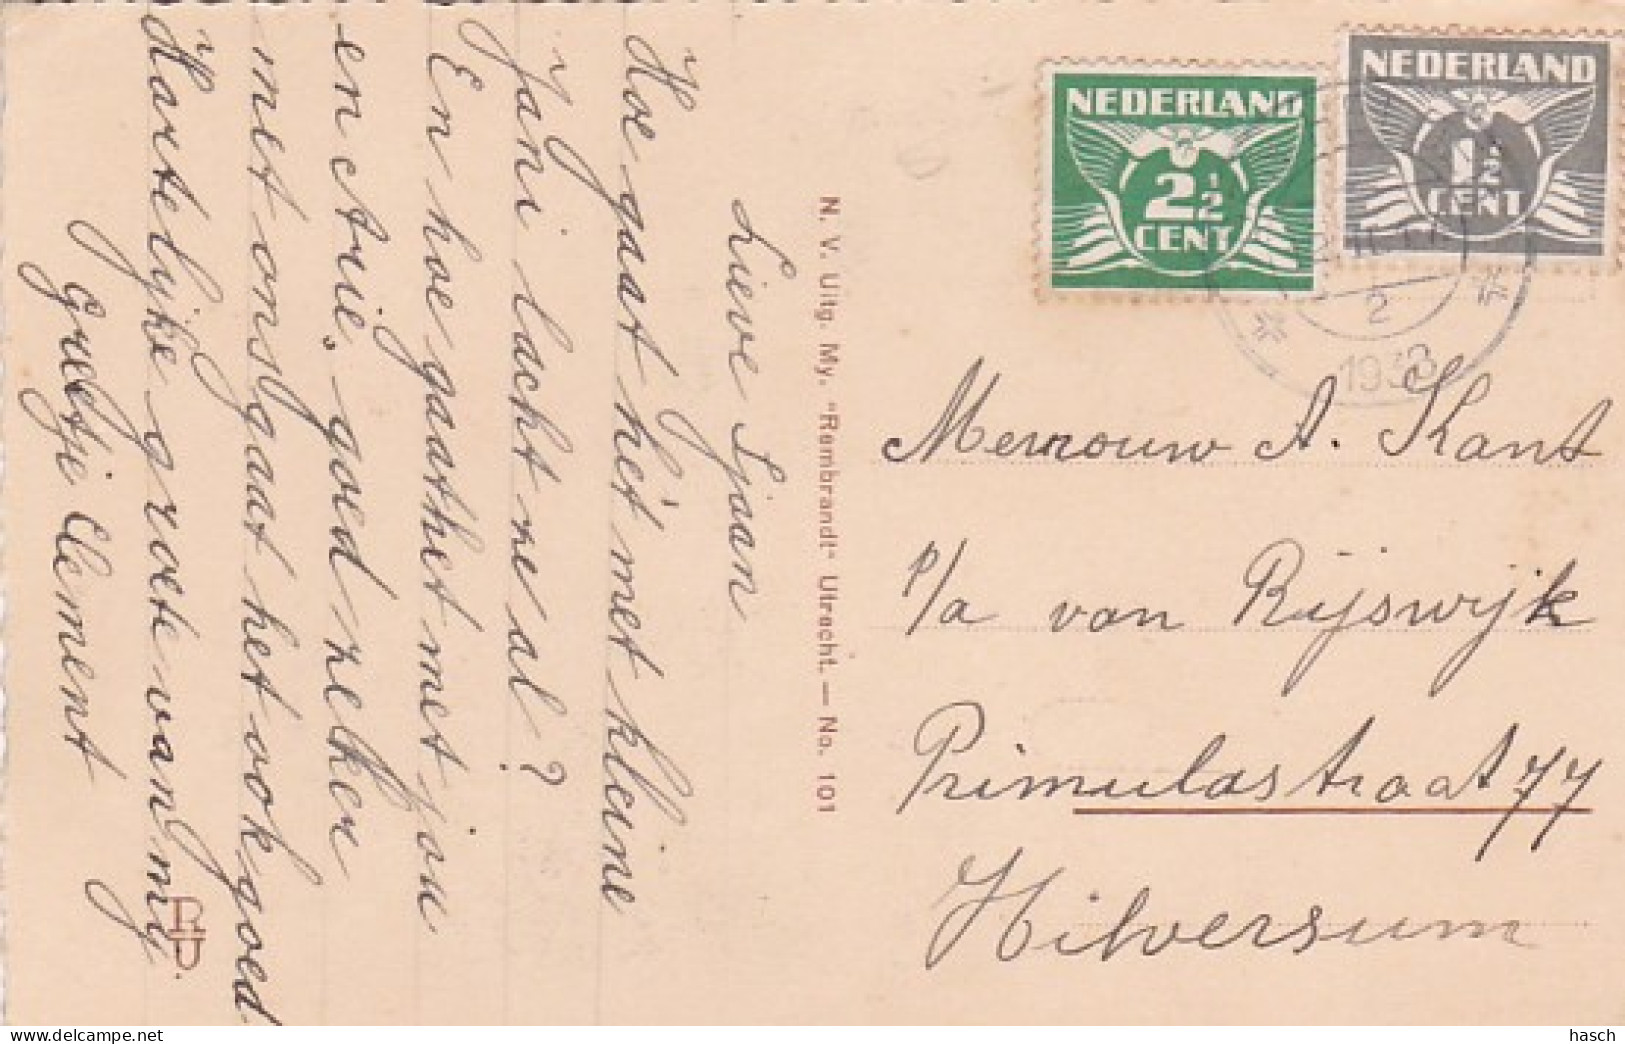 Lieve Sjaan
Hoe gaat het met kleine
Jani lacht ze al?
En hoe gaat het met jou
en Arie, goed zeker
met ons gaat het ook goed
Hartelijke groete van mij
Greetje Clement
N. V. Uitg. My. "Rembrandt" Utrecht. — No. 101
RU
NEDERLAND
2 1/2
CENT
NEDERLAND
1 1/2
CENT
2
1938
Mevrouw A. Kant
p/a van Rijswijk
Primulastraat 77
Hilversum
hasch